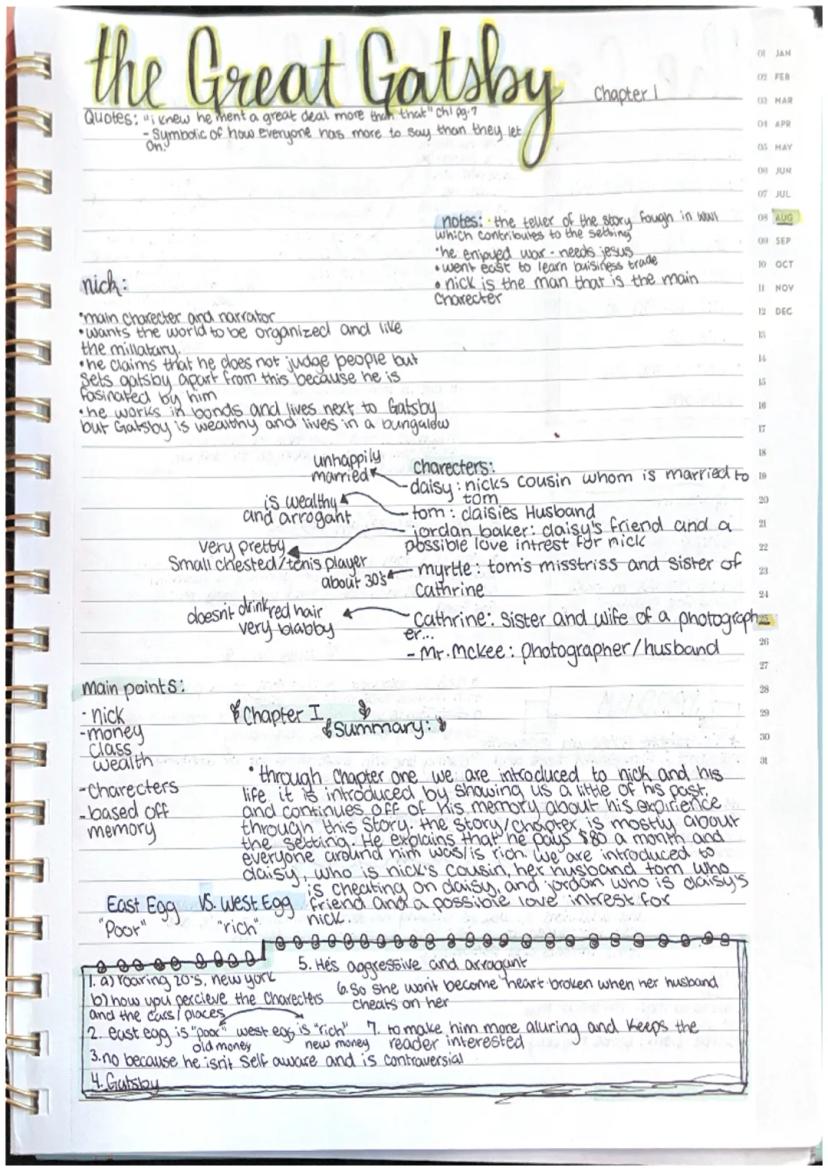 the Great Gatsby
Chapter 1
Quotes: "i knew he ment a great deal more than that" ch1 pg.7
- Symbolic of how everyone has more to say than they let
on.
notes: · the teller of the story fough in WWI
which contributes to the setting
·he enjoyed war - needs jesus
• went east to learn buisiness trade
• nick is the man that is the main
charecter
nick:
·main charecter and narrator
•wants the world to be organized and like
the millatary.
•he claims that he does not judge people but
sets gatsby apart from this because he is
fasinated by him
•he works in bonds and lives next to Gatsby
but Gatsby is wealthy and lives in a bungalow
charecters:
unhappily
married
-daisy: nicks cousin whom is married to
tom
is wealthy
and arrogant
- tom: daisies Husband
- jordan baker: daisy's friend and a
possible love intrest for nick
very pretty
Small chested/tenis player
about 30's
- myrtle: tom's misstriss and sister of
Cathrine
doesn't drink red hair
very blabby
- Cathrine: sister and wife of a photograph
er...
- Mr. Mckee: photographer/husband
main points:
- nick
-money
class
wealth
-charecters
-based off
memory
Chapter I
Summary:
• through chapter one we are introduced to nick and his
life. it is introduced by showing us a little of his past,
and continues off of his memory about his expirience
through this story. the story/chapter is mostly about
the setting. He explains that he pays $80 a month and
everyone around him was/is rich. we are introduced to
daisy, who is nick's cousin, her husband tom who
is cheating on daisy, and jordan who is daisy's
friend and a possible love intrest for
nick.
East Egg VS. West Egg
"Poor" "rich"
1. a) roaring 20's, new york
b) how you percieve the charecters
and the cars/places
2. east egg is "poor" west egg is "rich"
old money new money
3. no because he isn't self aware and is contraversial
4. Gatsby
5. He's aggressive and arragant
6. So she wont become heart broken when her husband
cheats on her
7. to make him more alluring and keeps the
reader interested
01 JAN
02 FEB
03 MAR
04 APR
05 MAY
06 JUN
07 JUL
08 AUG
09 SEP
10 OCT
11 NOV
12 DEC
13
14
15
16
17
18
19
20
21
22
23
24
25
26
27
28
29
30
31